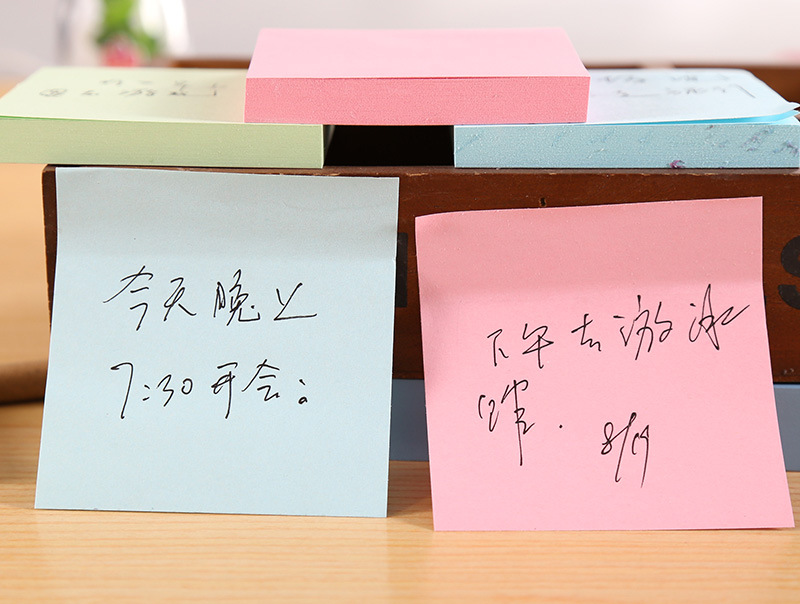 今天晚上
7:30开会。
下午去游泳
馆. 8/19